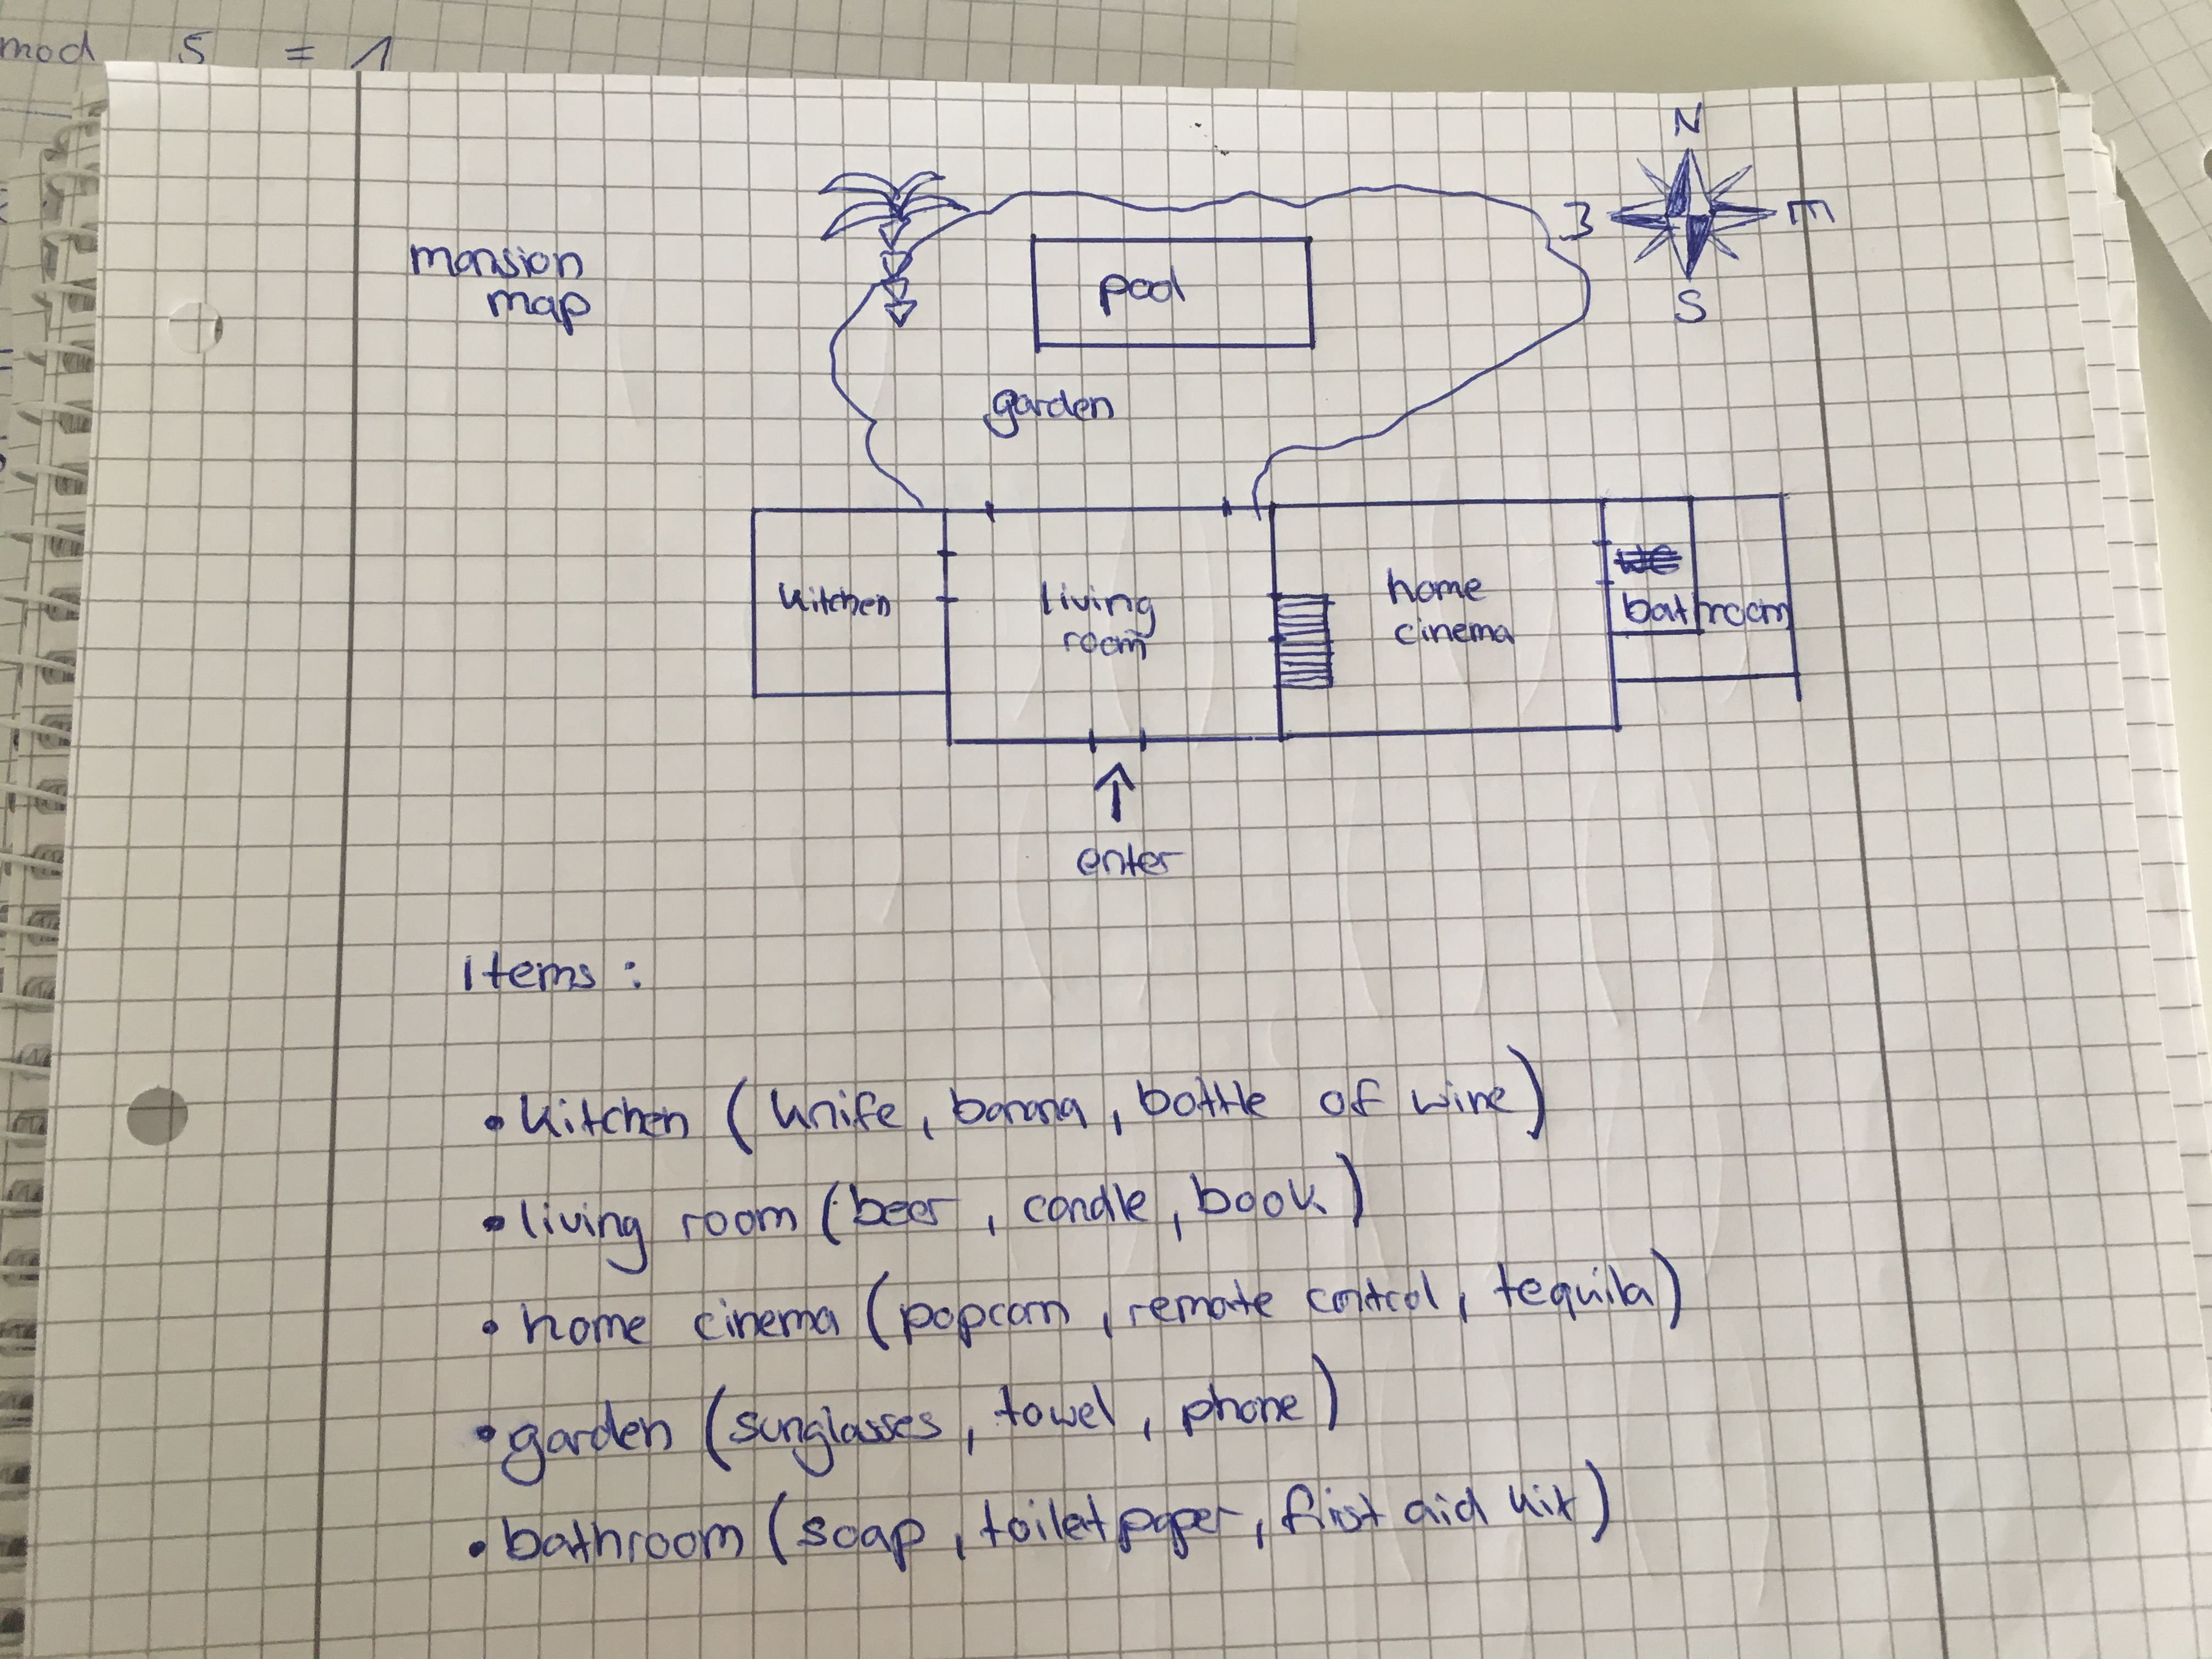 mod 5 = 1
N
W E
S
mansion
map
pool
garden
kitchen
living
room
home
cinema
WC
bathroom
enter
Items :
• kitchen ( knife, banana, bottle of wine)
• living room (beer, candle, book)
• home cinema (popcorn, remote control, tequila)
• garden (sunglasses, towel, phone)
• bathroom (soap, toilet paper, first aid kit)